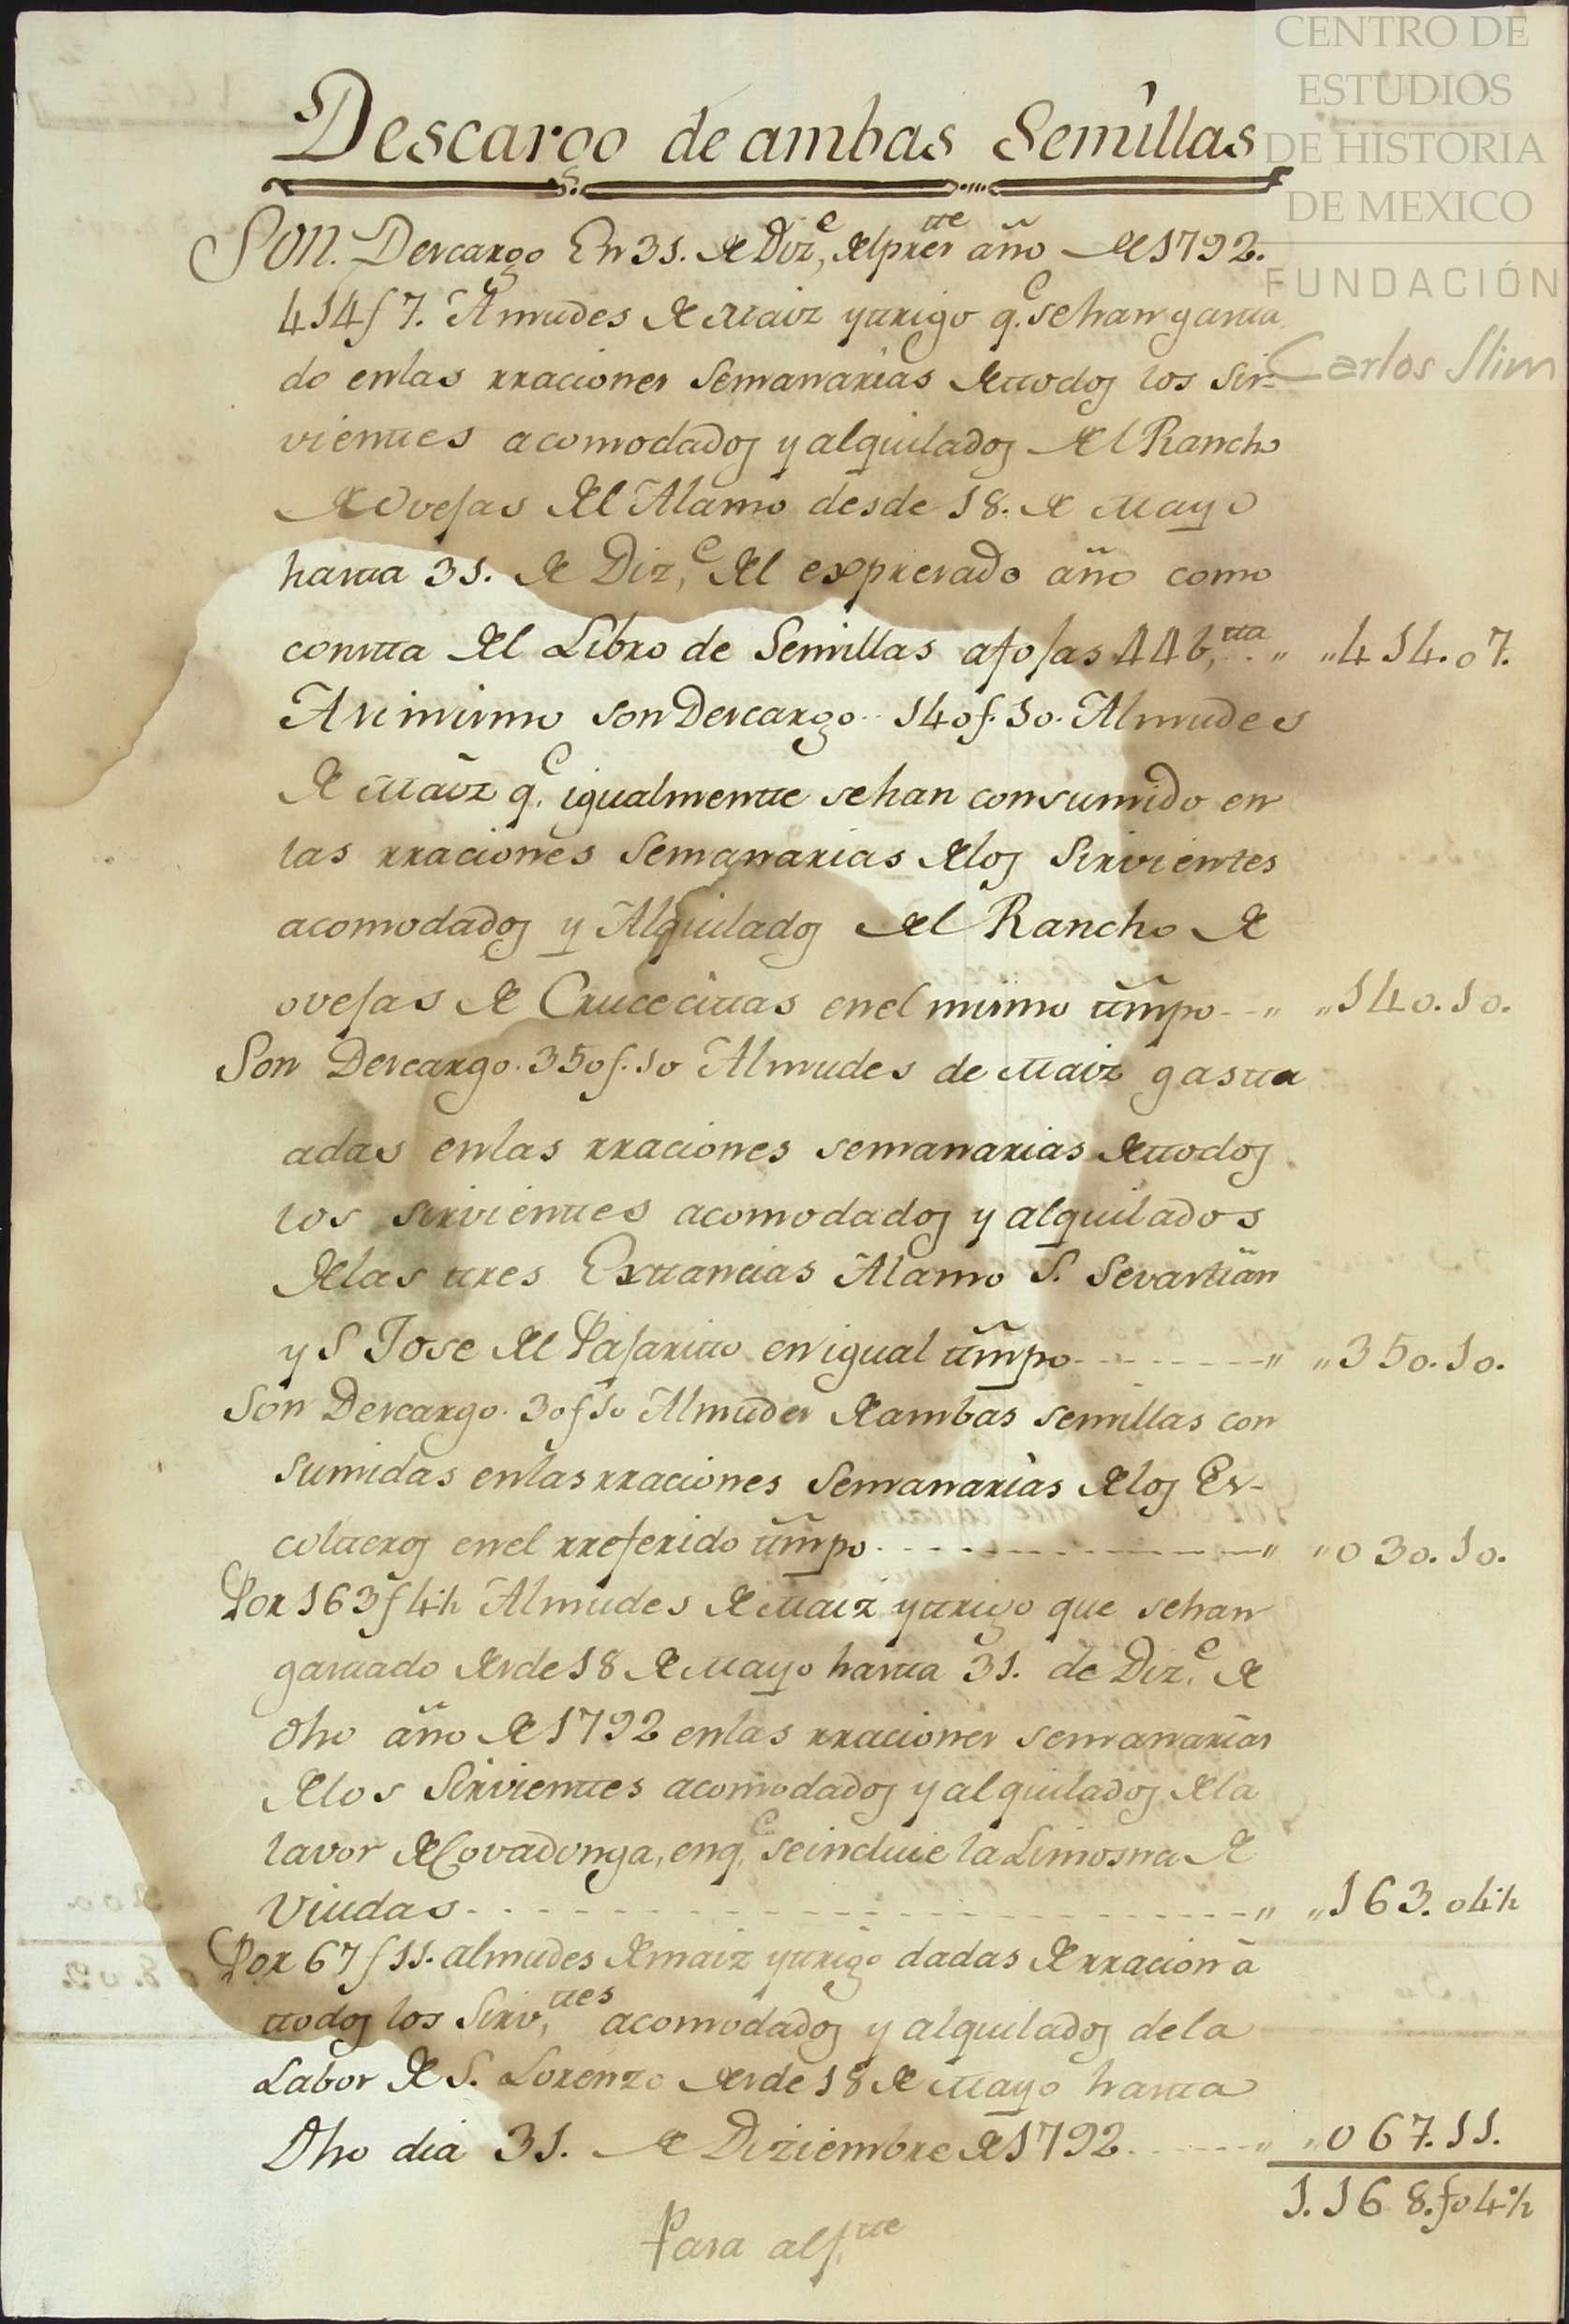 CENTRO DE
ESTUDIOS
DE HISTORIA
DE MEXICO
FUNDACIÓN
Carlos Slim
Descargo de ambas Semillas
Son. Descargo En 31. de Diz,e del prestte año de 1792.
414f 7. Almudes de Maiz y trigo q.e se han gasta
do en las rraciones Semanarias de todos los Sir-
vientes acomodados y alquilados del Rancho
de Ovejas del Alamo desde 18. de Mayo
hasta 31. de Diz,e del expresado año como
consta del Libro de Semillas afojas 44 b,ta " "414.07.
Asimismo son Descargo.. 140f. 10. Almudes
de Maiz q.e igualmente se han consumido en
las rraciones Semanarias de los Sirvientes
acomodados y Alquilados del Rancho de
ovejas de Crucecitas en el mismo tiñpo--" "140.10.
Son Descargo. 350f. 10 Almudes de Maiz gasta
adas en las rraciones semanarias de todos
los sirvientes acomodados y alquilados
de las tres Extancias Alamo S. Sevastian
y S Jose del Pajarito en igual tiñpo--------" "350.10.
Son Descargo. 30f 10 Almudes de ambas semillas con
sumidas en las rraciones Semanarias de los Es-
colteros en el rreferido tiñpo.---------------" "030.10.
Por 163f 4½ Almudes de Maiz y trigo que se han
gastado desde 18 de Mayo hasta 31. de Diz.e de
dho año de 1792 en las rraciones semanarias
de los Sirvientes acomodados y alquilados de la
lavor de Covadonga, en q.e se incluie la Limosna de
Viudas.--------------------" "163.04½
Por 67f 11. almudes de maiz y trigo dadas de rracion á
todos los Sirv,tes acomodados y alquilados de la
Labor de S. Lorenzo desde 18 de Mayo hasta
Dho dia 31. de Diziembre de 1792.------" "067.11.
1.168.f04½
Para alf,te